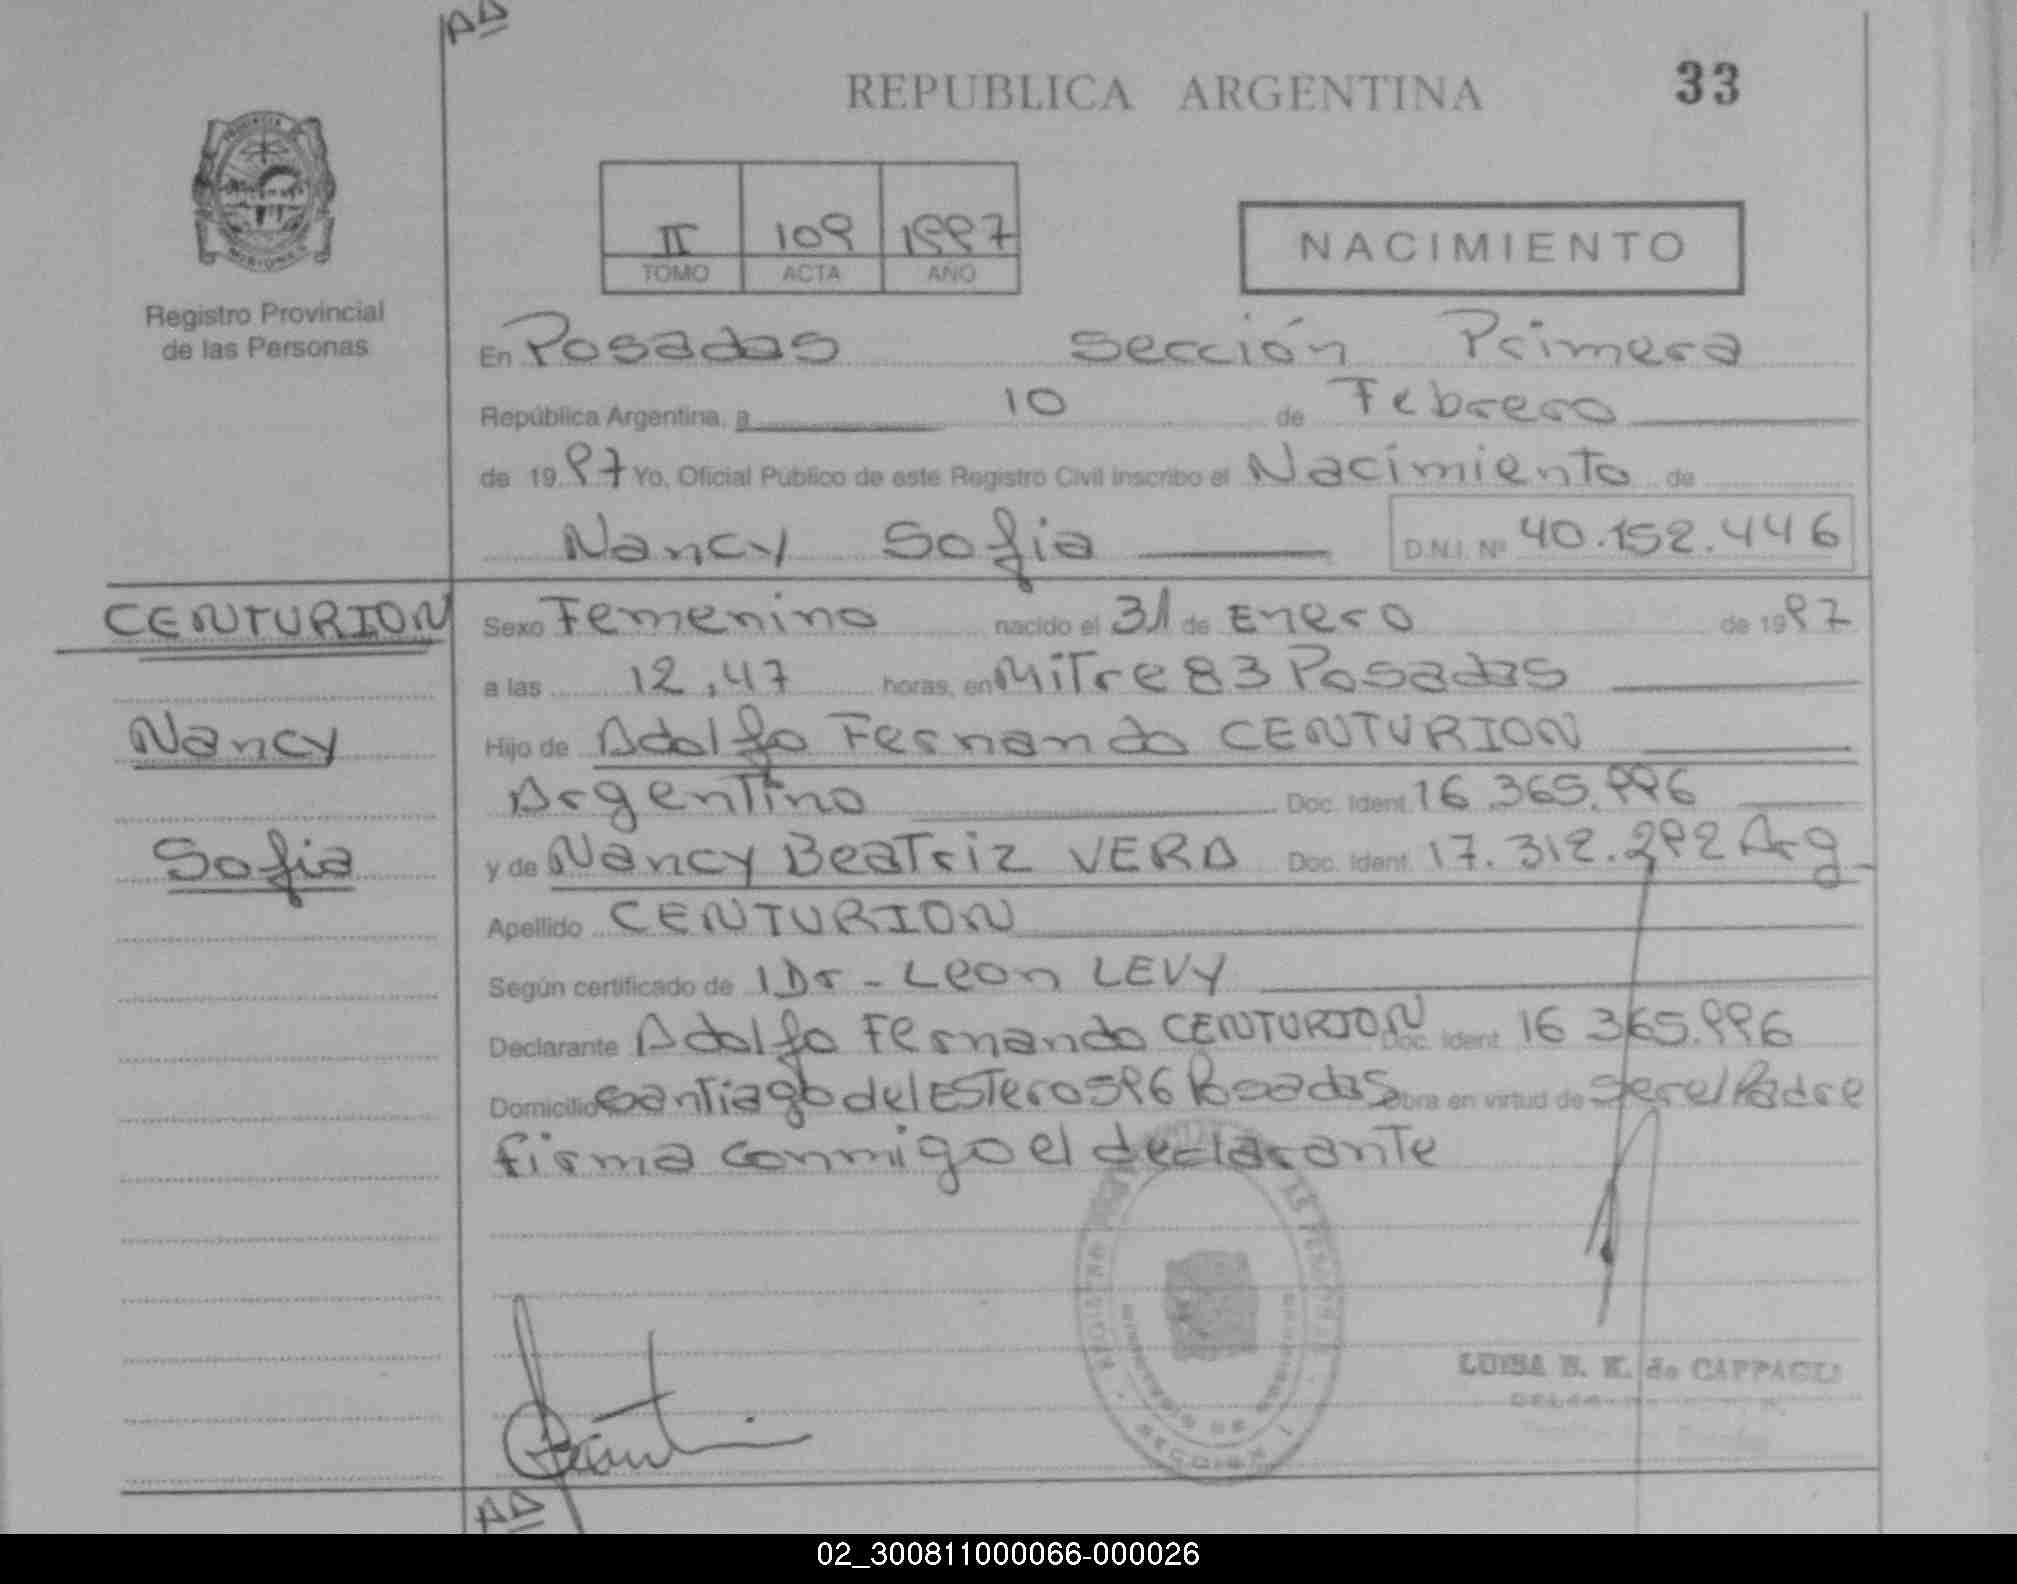 AD
REPUBLICA ARGENTINA 33
II 109 1997
TOMO ACTA AÑO
NACIMIENTO
Registro Provincial
de las Personas
En Posadas Sección Primera
República Argentina, a 10 de Febrero
de 19 97 Yo, Oficial Público de este Registro Civil inscribo el Nacimiento de
Nancy Sofia D.N.I. Nº 40.152.446
CENTURION
Nancy
Sofia
Sexo Femenino nacido el 31 de Enero de 19 97
a las 12,47 horas, en Mitre 83 Posadas
Hijo de Adolfo Fernando CENTURION
Argentino Doc. Ident. 16.365.996
y de Nancy Beatriz VERA Doc. Ident. 17.312.292 Arg
Apellido CENTURION
Según certificado de Dr - Leon LEVY
Declarante Adolfo Fernando CENTURION Doc. Ident. 16 365.996
Domicilio Santiago del Estero 596 Posadas Obra en virtud de ser el Padre
firma conmigo el declarante
LUISA B. K. de CAPPAGLI
AD
02_300811000066-000026